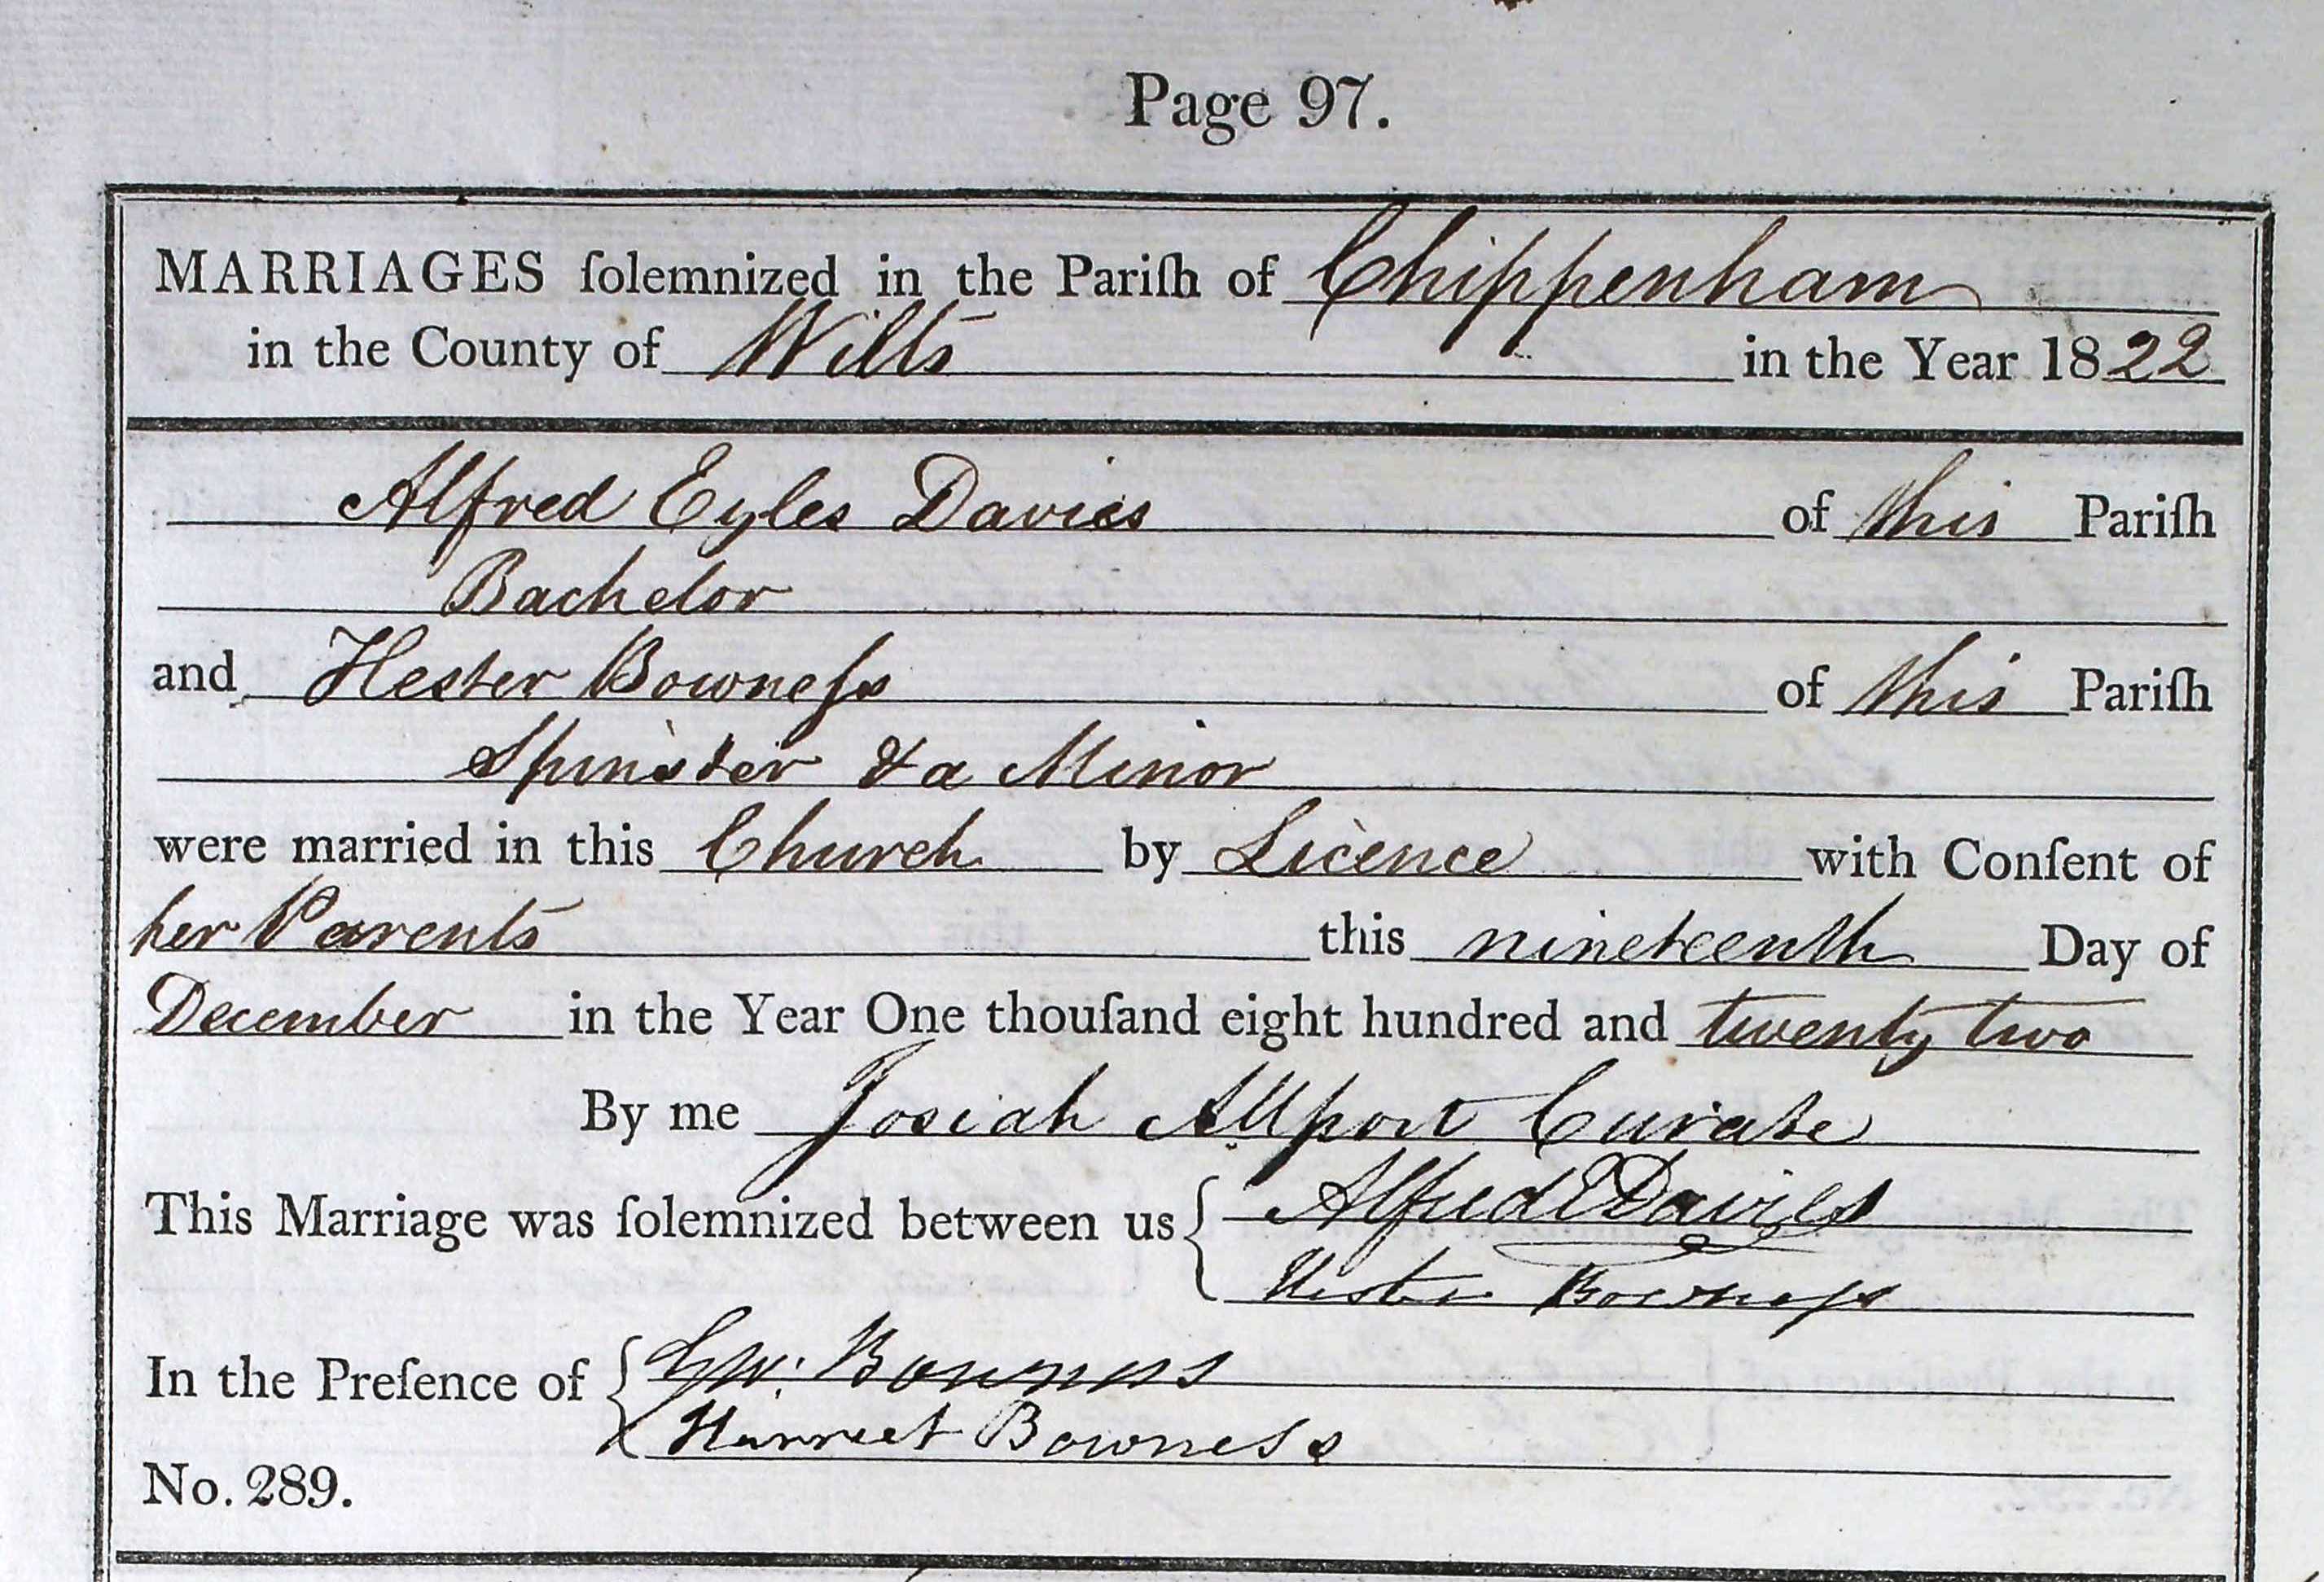 Page 97.
MARRIAGES ſolemnized in the Pariſh of Chippenham
in the County of Wilts in the Year 1822
Alfred Eyles Davies of this Pariſh
Bachelor
and Hester Bowneſs of this Pariſh
Spinster & a Minor
were married in this Church by Licence with Conſent of
her Parents this nineteenth Day of
December in the Year One thouſand eight hundred and twenty two
By me Josiah Allport Curate
This Marriage was ſolemnized between us { Alfred E Davies
Hester Bowneſs
In the Preſence of { GW. Bowness
Harriet Bowness
No. 289.